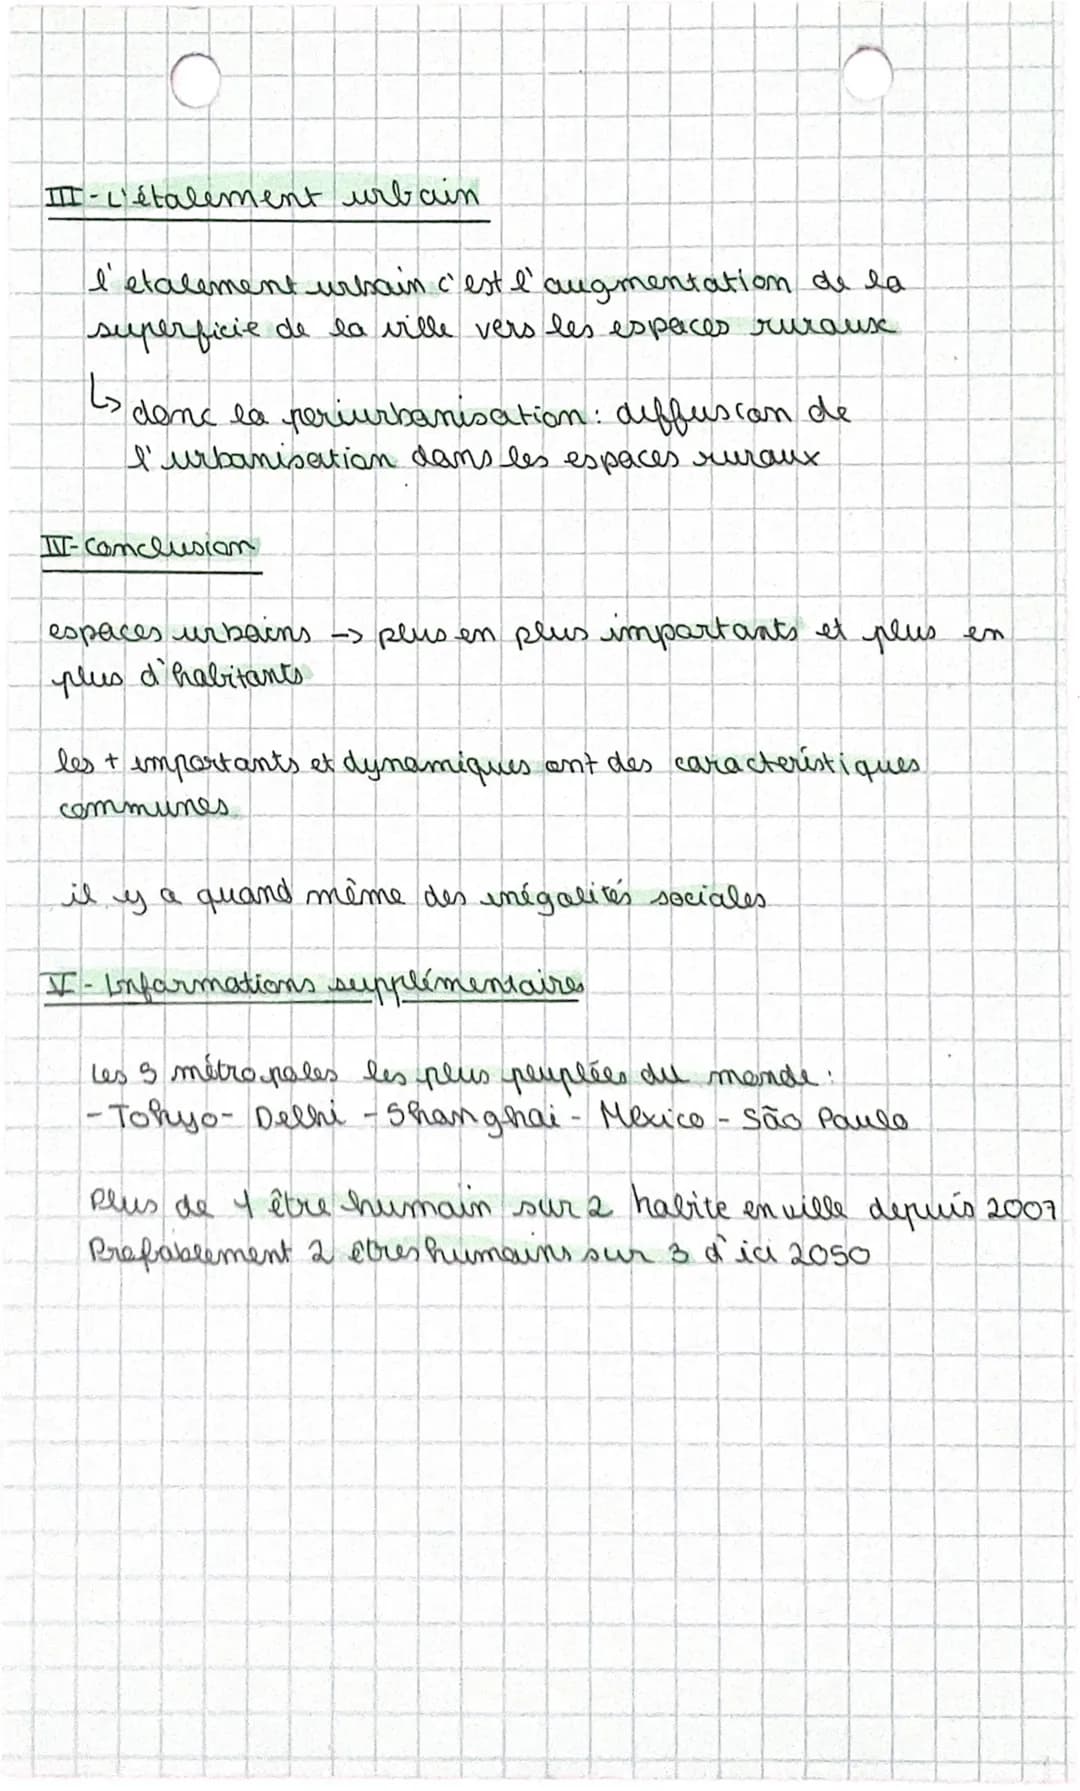 III - L'étalement urbain
l'etalement urbain c'est l'augmentation de la
superficie de la ville vers les espaces ruraux
↳ donc la periurbanisation : diffusion de
l'urbanisation dans les espaces ruraux
IV - Conclusion
espaces urbains → plus en plus importants et plus en
plus d'habitants
les + importants et dynamiques ont des caractéristiques
communes
il y a quand même des inégalités sociales
V - Informations supplémentaires
Les 5 métropoles les plus peuplées du monde :
- Tokyo - Delhi - Shanghai - Mexico - São Paulo
Plus de 1 être humain sur 2 habite en ville depuis 2007
Probablement 2 êtres humains sur 3 d'ici 2050